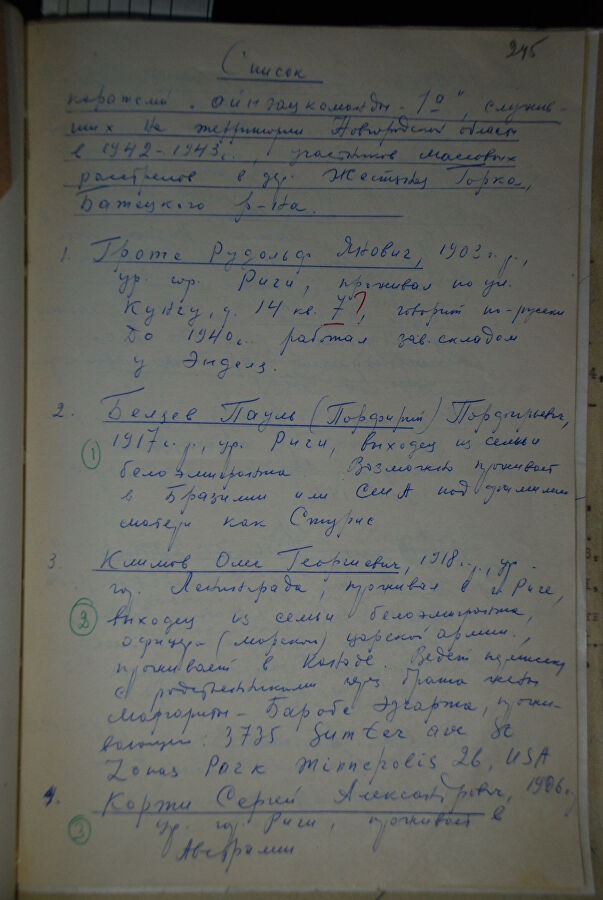 245
Список
карателей „айнзацкоманды - 1а", служив-
ших на территории Новгородской области
в 1942-1943гг., участников массовых
расстрелов в дер. Жестяная Горка,
Батецкого р-на.
1. Гроте Рудольф Янович, 1903 г.р.,
ур. гор. Риги, проживал по ул.
д. 14 кв. 7?, говорит по-русски
До 1940г. работал зав. складом
у
2. Белцев Пауль (Порфирий) Порфирьевич,
1917 г.р., ур. Риги, выходец из семьи
1
белоэмигранта Возможно проживает
в Бразилии или США под фамилией
матери как Стурис
3. Климов Олег Георгиевич, 1918 г.р., ур.
гор. Ленинграда, проживал в г. Риге,
2
выходец из семьи белоэмигранта,
офицера (морской) царской армии,
проживает в Канаде. Ведет переписку
с родственниками через брата жены
Маргариты - Эдгарда, прожи-
вающего: 3735 Sumter ave So
Park Minnepolis 26, USA
4. Коржи Сергей Александрович, 1906 г.
ур. гор. Риги, проживает в
3
Австралии